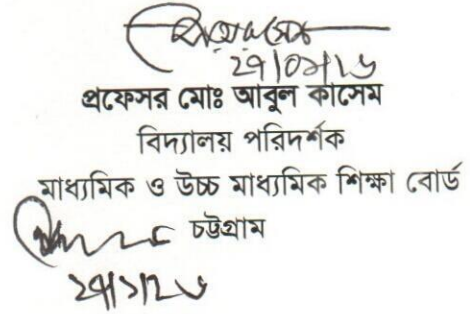 ২৭/০১/১৬
প্রফেসর মোঃ আবুল কাসেম
বিদ্যালয় পরিদর্শক
মাধ্যমিক ও উচ্চ মাধ্যমিক শিক্ষা বোর্ড
চট্টগ্রাম
২৭/১/১৬